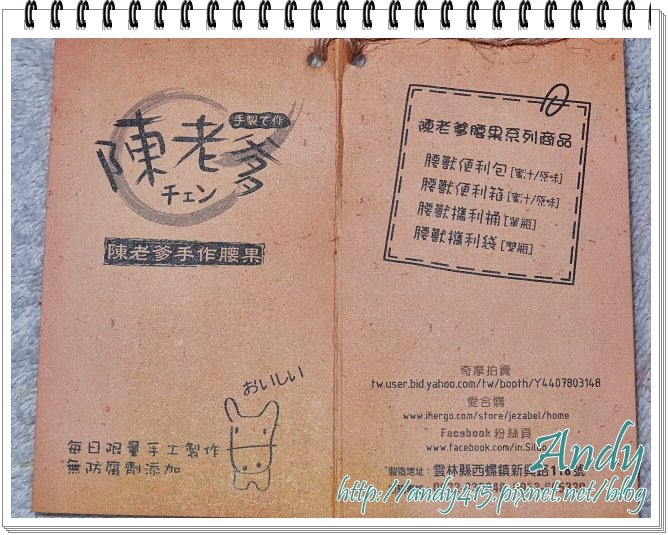 手製で作
陳老爹
チェン
陳老爹手作腰果
おいしい
每日限量手工製作
無防腐劑添加
陳老爹腰果系列商品
腰獸便利包[蜜汁/原味]
腰獸便利箱[蜜汁/原味]
腰獸攜利桶[單瓶]
腰獸攜利袋[雙瓶]
奇摩拍賣
tw.user.bid.yahoo.com/tw/booth/Y4407803148
愛合購
www.ihergo.com/store/jezabel/home
Facebook 粉絲頁
www.facebook.com/in.Si
製造地址: 雲林縣西螺鎮新興路116號
Andy
http://andy415.pixnet.net/blog